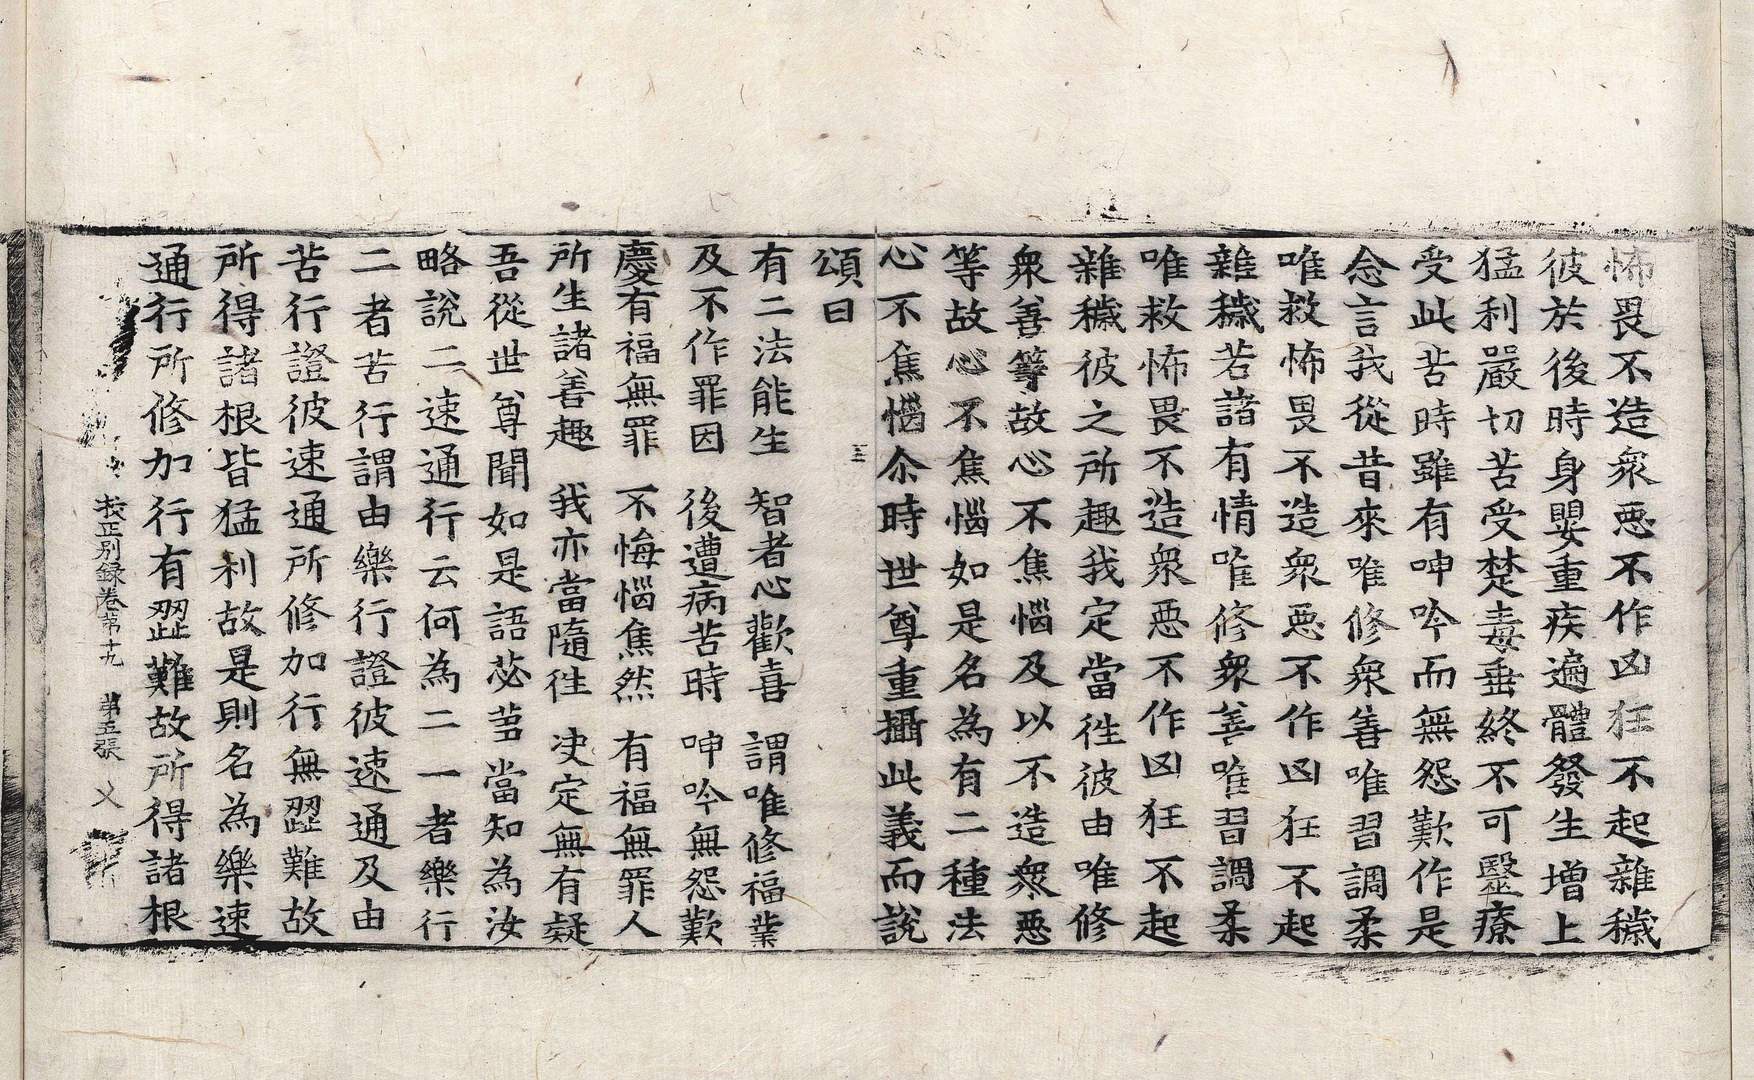 怖畏不造衆惡不作凶狂不起雜穢
彼於後時身嬰重疾遍體發生增上
猛利嚴切苦受楚毒垂終不可毉療
受此苦時雖有呻吟而無怨歎作是
念言我從昔來唯修衆善唯習調柔
唯救怖畏不造衆惡不作凶狂不起
雜穢若諸有情唯修衆善唯習調柔
唯救怖畏不造衆惡不作凶狂不起
雜穢彼之所趣我定當徃彼由唯修
衆善等故心不焦惱及以不造衆惡
等故心不焦惱如是名為有二種法
心不焦惱尒時世尊重攝此義而說
頌曰
有二法能生 智者心歡喜 謂唯修福業
及不作罪因 後遭病苦時 呻吟無怨歎
慶有福無罪 不悔惱焦然 有福無罪人
所生諸善趣 我亦當隨徃 决定無有疑
吾從世尊聞如是語苾芻當知為汝
略說二速通行云何為二一者樂行
二者苦行謂由樂行證彼速通及由
苦行證彼速通所修加行無𨇾難故
所得諸根皆猛利故是則名為樂速
通行所修加行有𨇾難故所得諸根
校正別録卷第十九 第五張 乂